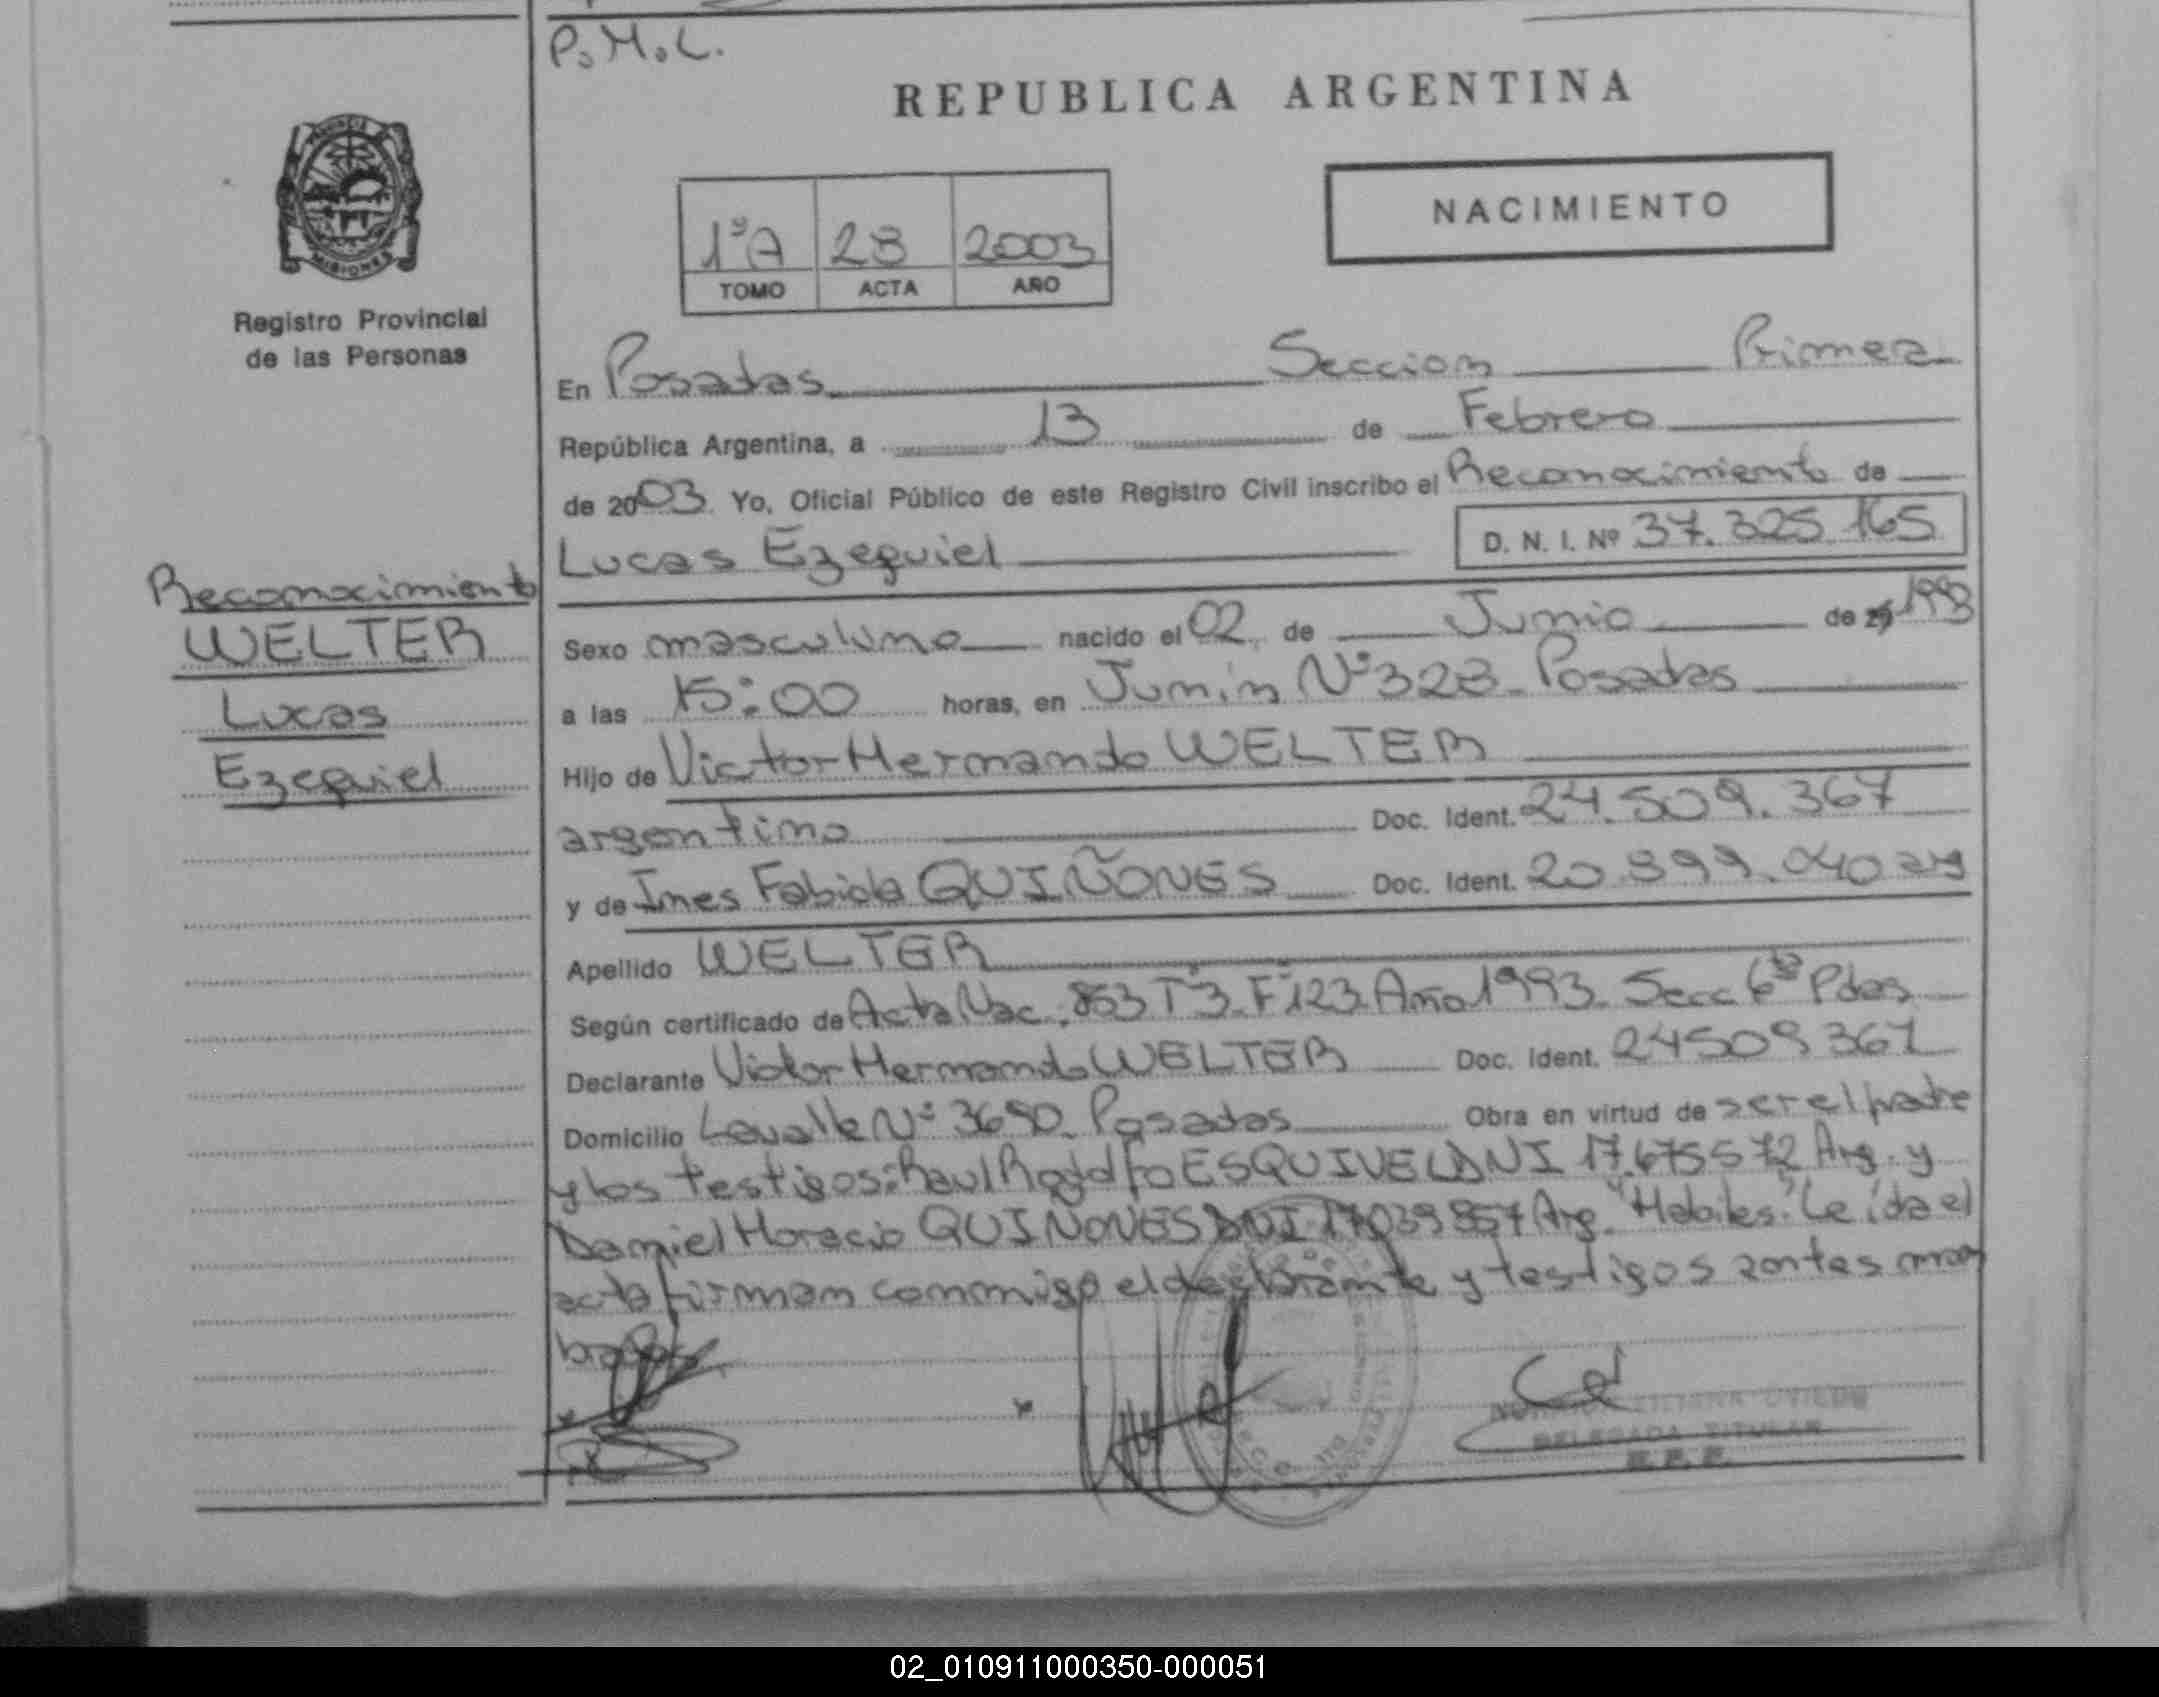 P.M.C.
REPUBLICA ARGENTINA
NACIMIENTO
1ºA 28 2003
TOMO ACTA AÑO
MISIONES
Registro Provincial
de las Personas
Reconocimiento
WELTER
Lucas
Ezequiel
En Posadas Seccion Primera
República Argentina, a 13 de Febrero
de 2003. Yo, Oficial Público de este Registro Civil inscribo el Reconocimiento de
Lucas Ezequiel D. N. I. Nº 37.325.165
Sexo masculino nacido el 02 de Junio de 1993
a las 15:00 horas, en Junín Nº 328 - Posadas
Hijo de Victor Hernando WELTER
argentino Doc. Ident. 24.509.367
y de Ines Fabiola QUIÑONES Doc. Ident. 20.899.040 arg
Apellido WELTER
Según certificado de Acta Nac. 853 Tº3. Fº123 Año 1993. Secc 6ta Pdas
Declarante Victor Hernando WELTER Doc. Ident. 24509367
Domicilio Lavalle Nº 3650. Posadas Obra en virtud de ser el padre
y los testigos: Raul Rodolfo ESQUIVEL DNI 17.675572 Arg. y
Daniel Horacio QUIÑONES DNI 17039857 Arg. "Habiles". Leída el
acta firman conmigo el declarante y testigos
LILIANA OVIEDO
DELEGADA TITULAR
R.P.P.
02_010911000350-000051